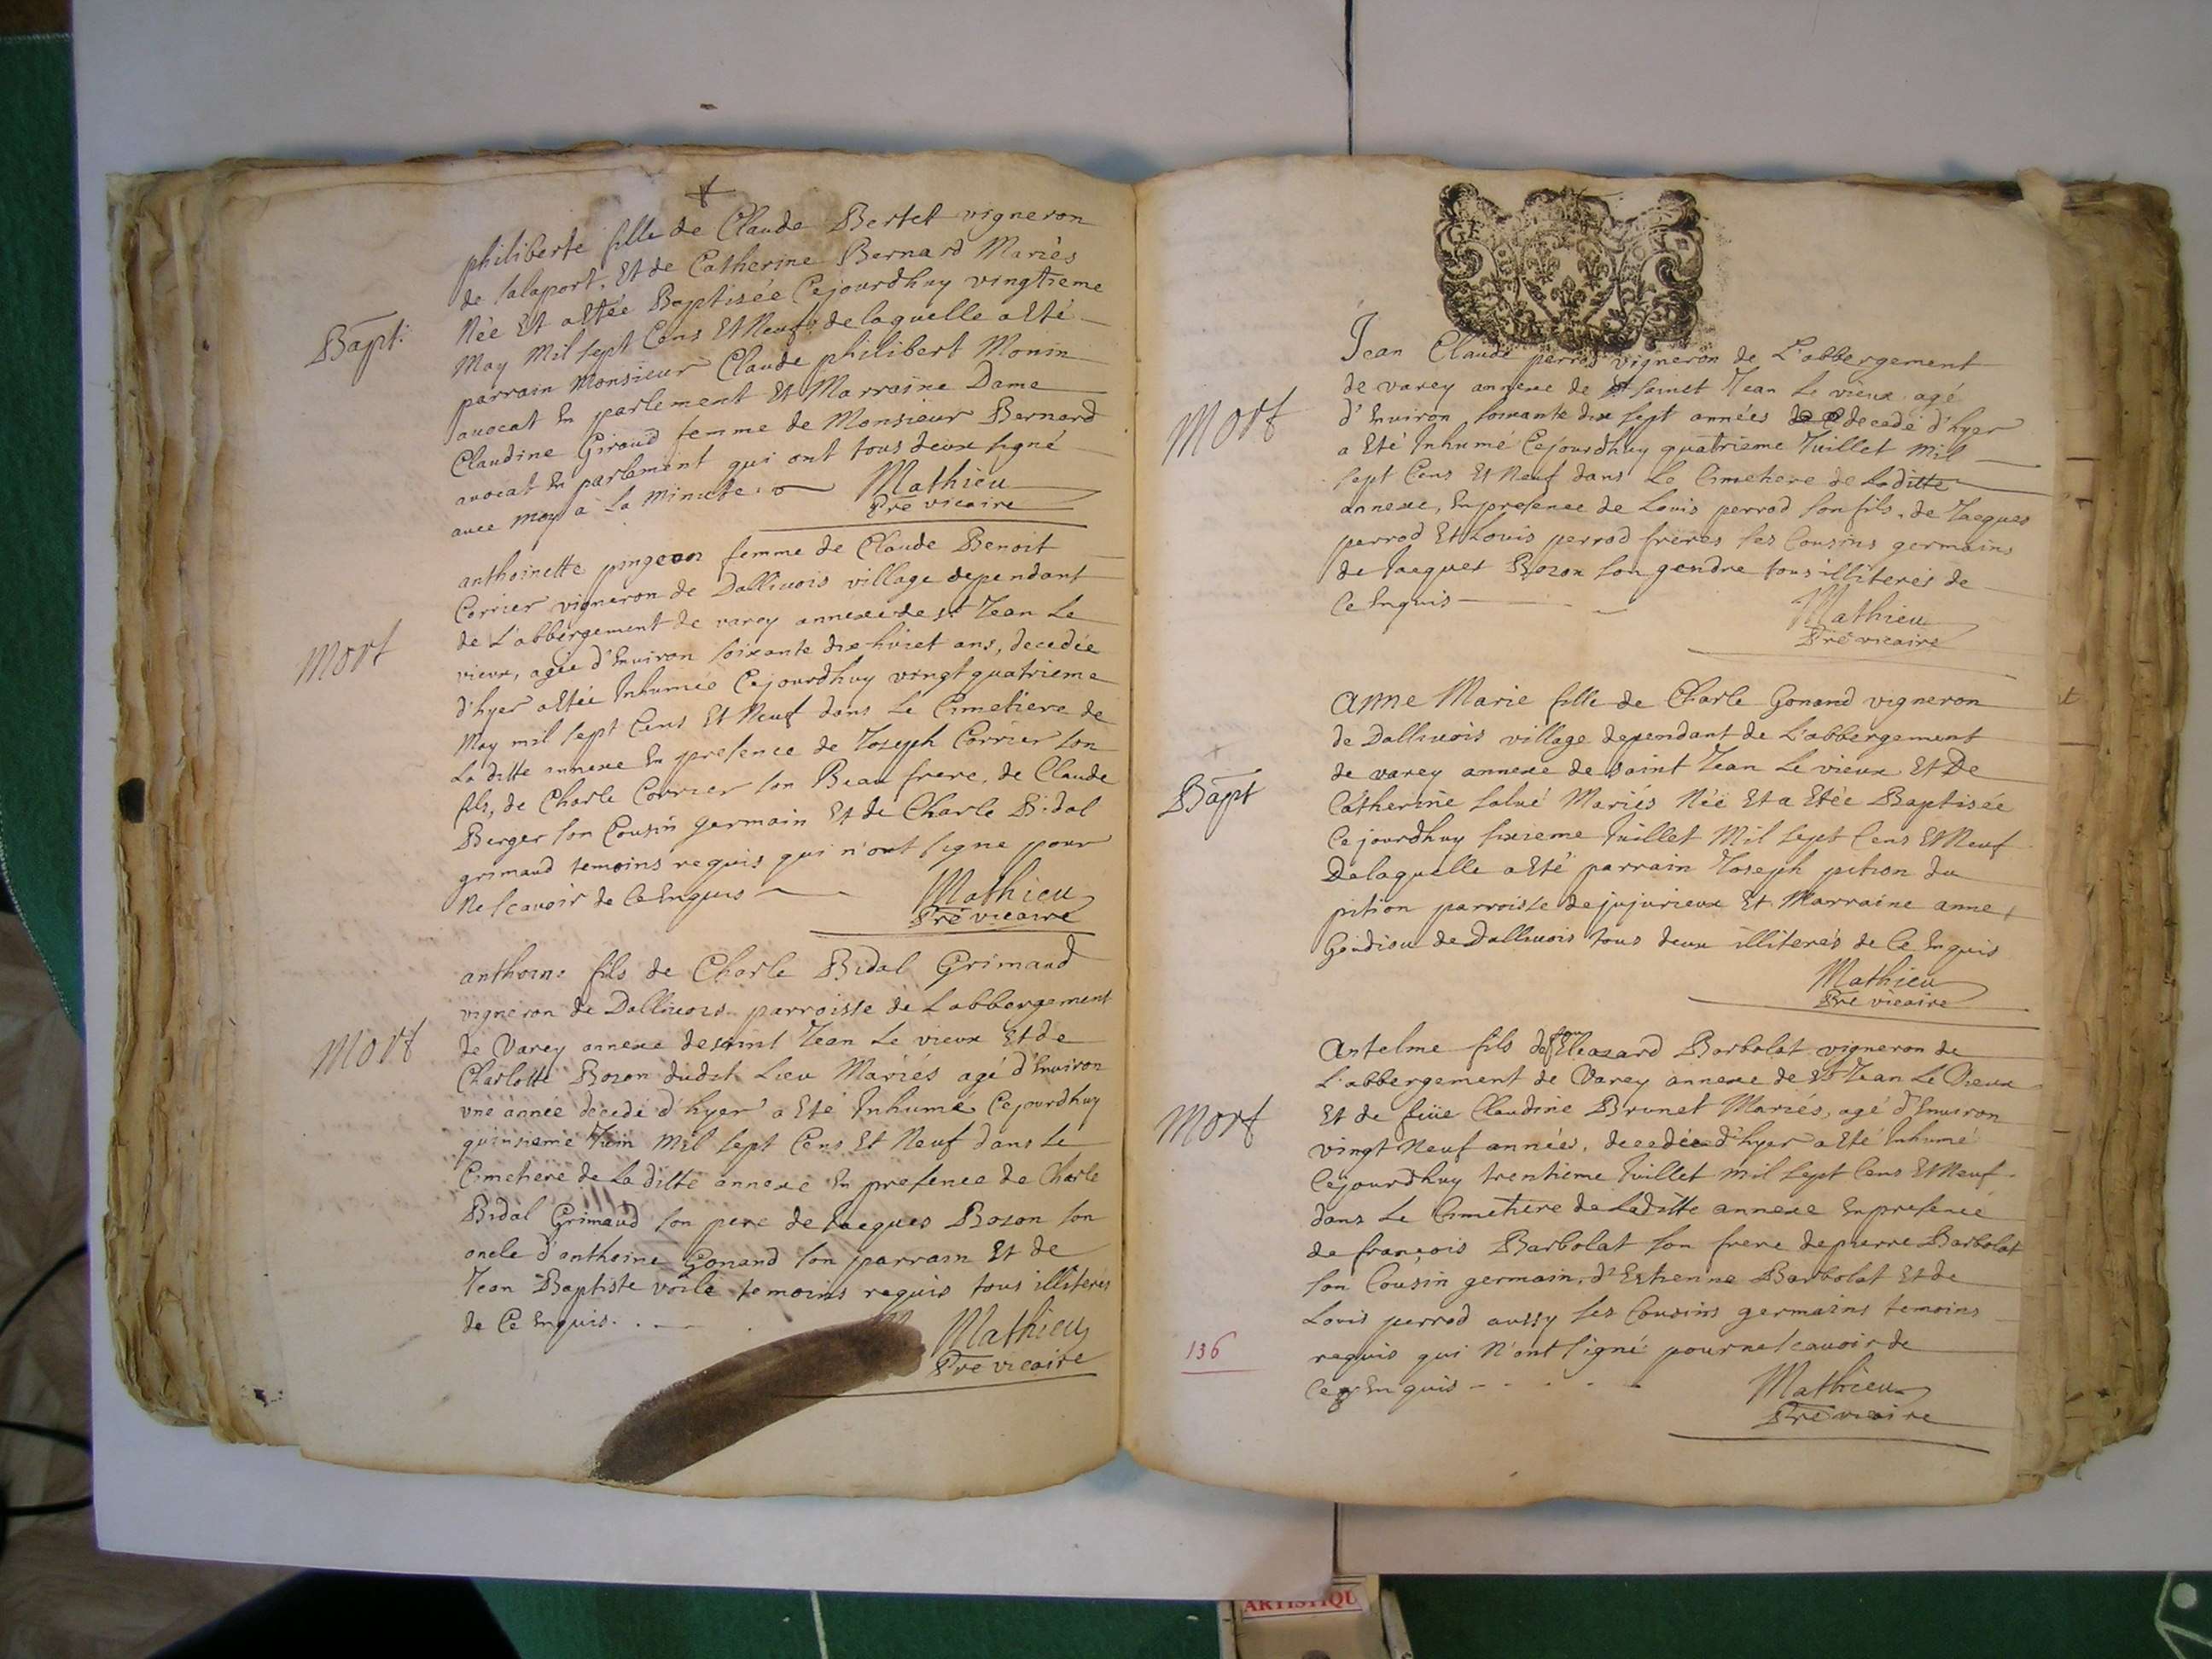 philiberte fille de Claude Bertet vigneron
de salaport, Et de Catherine Bernard Mariés
Née Et a Etée Baptisée Cejourdhuy vingtieme
Bapt:
May Mil sept Cens Et Neuf: de laquelle a Eté
parrain Monsieur Claude philibert Monin
avocat En parlement Et Marraine Dame
Claudine Giraud femme de Monsieur Bernard
avocat En parlement qui ont tous deux signé
avec moy a La minute. Mathieu
Pre vicaire
anthoinette pingeon femme de Claude Benoit
Corrier vigneron de Dallivois village dependant
de L'abbergement de varey annexe de st Jean Le
Mort
vieux, agée d'Environ soixante dix huict ans, decedée
d'hyer a Etée Inhumée Cejourdhuy vingt quatrieme
May mil sept Cens Et Neuf dans Le Cimetiere de
La ditte annexe En presence de Joseph Corrier son
fils, de Charle Corrier son Beau frere, de Claude
Berger son Cousin germain Et de Charle Bidal
grimaud temoins requis qui n'ont signe pour
Ne scavoir de Ce Enquis Mathieu
Pre vicaire
anthoine fils de Charle Bidal Grimaud
vigneron de Dallivois parroisse de L'abbergement
Mort
de Varey annexe de saint Jean Le vieux Et de
Charlotte Bozon dudit Lieu Mariés agé d'Environ
une année decedé d'hyer a Eté Inhumé Cejourdhuy
quinzieme Juin Mil sept Cens Et Neuf dans Le
Cimetiere de La ditte annexe En presence de Charle
Bidal Grimaud son pere de Jacques Bozon son
oncle d'anthoine Gonand son parrain Et de
Jean Baptiste voile temoins requis tous illiterés
de Ce Enquis. Mathieu
Pre vicaire
Jean Claude perrod vigneron de L'abbergement
de varey annexe de sainct Jean Le vieux, agé
Mort
d'Environ soixante dix sept années decedé d'hyer
a Eté Inhumé Cejourdhuy quatrieme Juillet Mil
sept Cens Et Neuf dans Le Cimetiere de La ditte
annexe, En presence de Louis perrod son fils, de Jacques
perrod Et Louis perrod freres ses Cousins germains
de Jacques Bozon son gendre tous illiterés de
Ce Enquis
Mathieu
Pre vicaire
Anne Marie fille de Charle Gonand vigneron
de Dallivois village dependant de L'abbergement
de varey annexe de saint Jean Le vieux Et De
Bapt
Catherine salué Mariés Née Et a Etée Baptisée
Cejourdhuy sixieme Juillet Mil sept Cens Et Neuf
De laquelle a Eté parrain Joseph pition du
pition parroisse de jujurieux Et Marraine anne
de Dallivois tous deux illiterés de Ce Enquis
Mathieu
Pre vicaire
Antelme fils de feu Eleazard Barbolat vigneron de
L'abbergement de Varey annexe de St Jean Le Vieux
Mort
Et de feüe Claudine Brunet Mariés, agé d'Environ
vingt Neuf années, decedée d'hyer a Eté Inhumé
Cejourdhuy trentieme Juillet mil sept Cens Et Neuf
dans Le Cimetiere de La ditte annexe En presence
de françois Barbolat son frere de pierre Barbolat
son Cousin germain, d'Estienne Barbolat Et de
Louis perrod aussy ses Cousins germains temoins
136
requis qui N'ont signé pour ne scavoir de
Ce Enquis
Mathieu
Pre vicaire
ARTISTIQU